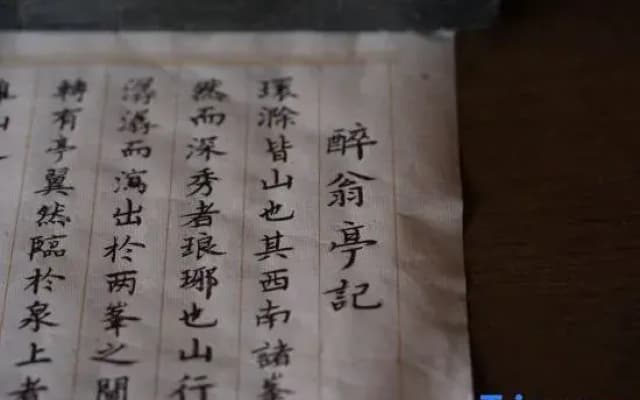 醉翁亭記
環滁皆山也其西南諸峯
然而深秀者琅琊也山行
潺潺而瀉出於两峯之間
轉有亭翼然臨於泉上者
山